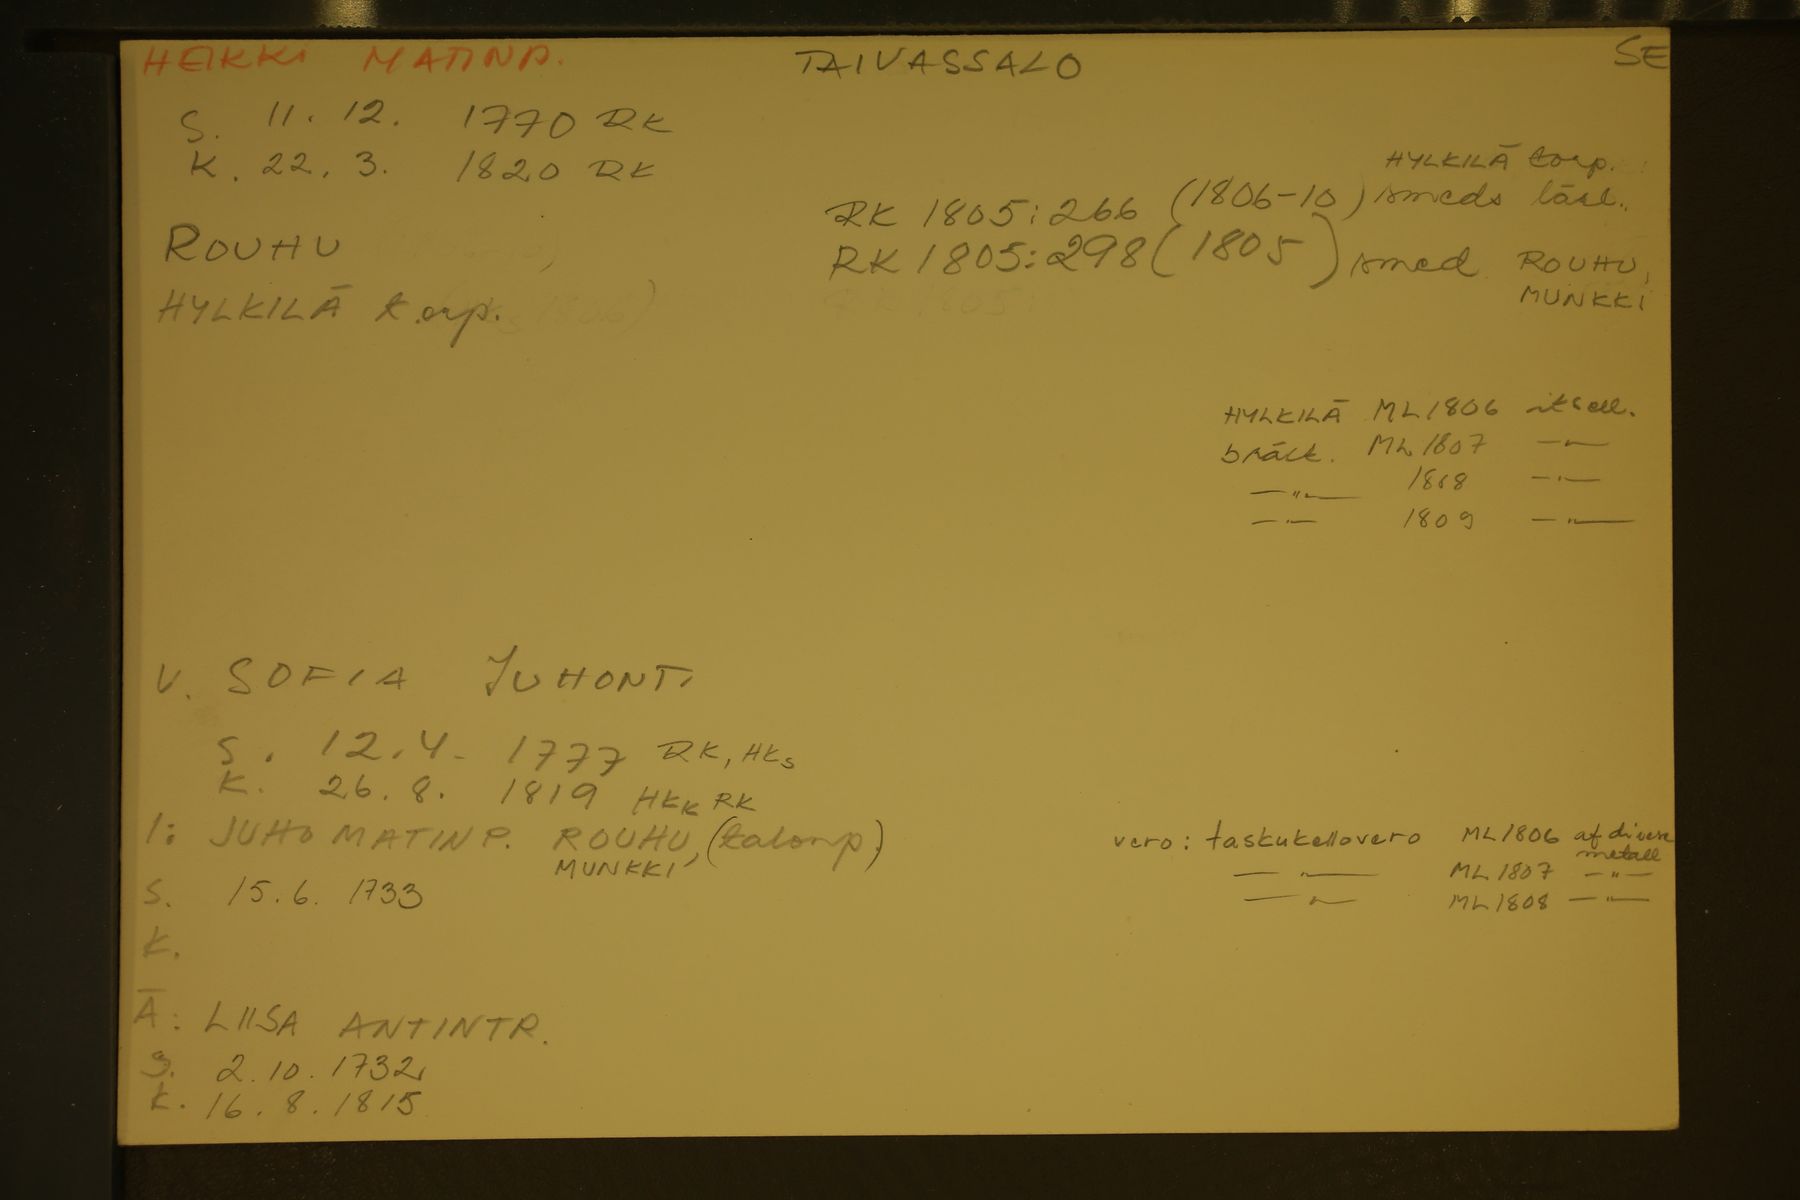 HEIKKI MATINP. TAIVASSALO SE
S. 11. 12. 1770 RK
K. 22. 3. 1820 RK
HYLKILÄ torp.
RK 1805: 266 (1806-10) smeds läsl..
ROUHU
RK 1805: 298 (1805) smed ROUHU,
MUNKKI
HYLKILÄ torp.
HYLKILÄ ML 1806 itsell.
bräck. ML 1807 —"—
—"— 1808 —"—
—"— 1809 —"—
V. SOFIA JUHONT.
S. 12.4. 1777 RK, HKs
K. 26. 8. 1819 HKK RK
I: JUHO MATINP. ROUHU, (talonp.)
MUNKKI
vero: taskukellovero ML 1806 af diverse
metall
—"— ML 1807 —"—
—"— ML 1808 —"—
S. 15.6. 1733
K.
Ä: LIISA ANTINTR.
S. 2.10.1732
K. 16.8.1815